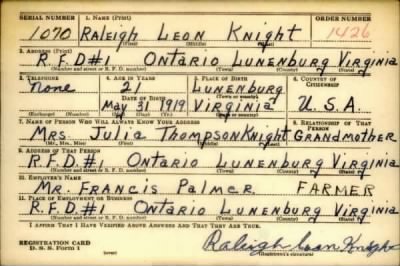 SERIAL NUMBER 1. NAME (Print) ORDER NUMBER
1070 Raleigh Leon Knight 1426
(First) (Middle) (Last)
2. ADDRESS (Print)
R.F.D#1 Ontario Lunenburg Virginia
(Number and street or R. F. D. number) (Town) (County) (State)
3. TELEPHONE 4. AGE IN YEARS 5. PLACE OF BIRTH 6. COUNTRY OF CITIZENSHIP
None 21 Lunenburg
DATE OF BIRTH (Town or county)
May 31 1919 Virginia U.S.A.
(Exchange) (Number) (Mo.) (Day) (Yr.) (State or country)
7. NAME OF PERSON WHO WILL ALWAYS KNOW YOUR ADDRESS 8. RELATIONSHIP OF THAT PERSON
Mrs. Julia Thompson Knight Grandmother
(Mr., Mrs., Miss) (First) (Middle) (Last)
9. ADDRESS OF THAT PERSON
R.F.D.#1 Ontario Lunenburg Virginia
(Number and street or R. F. D. number) (Town) (County) (State)
10. EMPLOYER'S NAME
Mr. Francis Palmer FARMER
11. PLACE OF EMPLOYMENT OR BUSINESS
R.F.D.#1 Ontario Lunenburg Virginia
(Number and street or R. F. D. number) (Town) (County) (State)
I AFFIRM THAT I HAVE VERIFIED ABOVE ANSWERS AND THAT THEY ARE TRUE.
REGISTRATION CARD
D. S. S. Form 1
Raleigh Leon Knight
(Registrant's signature)